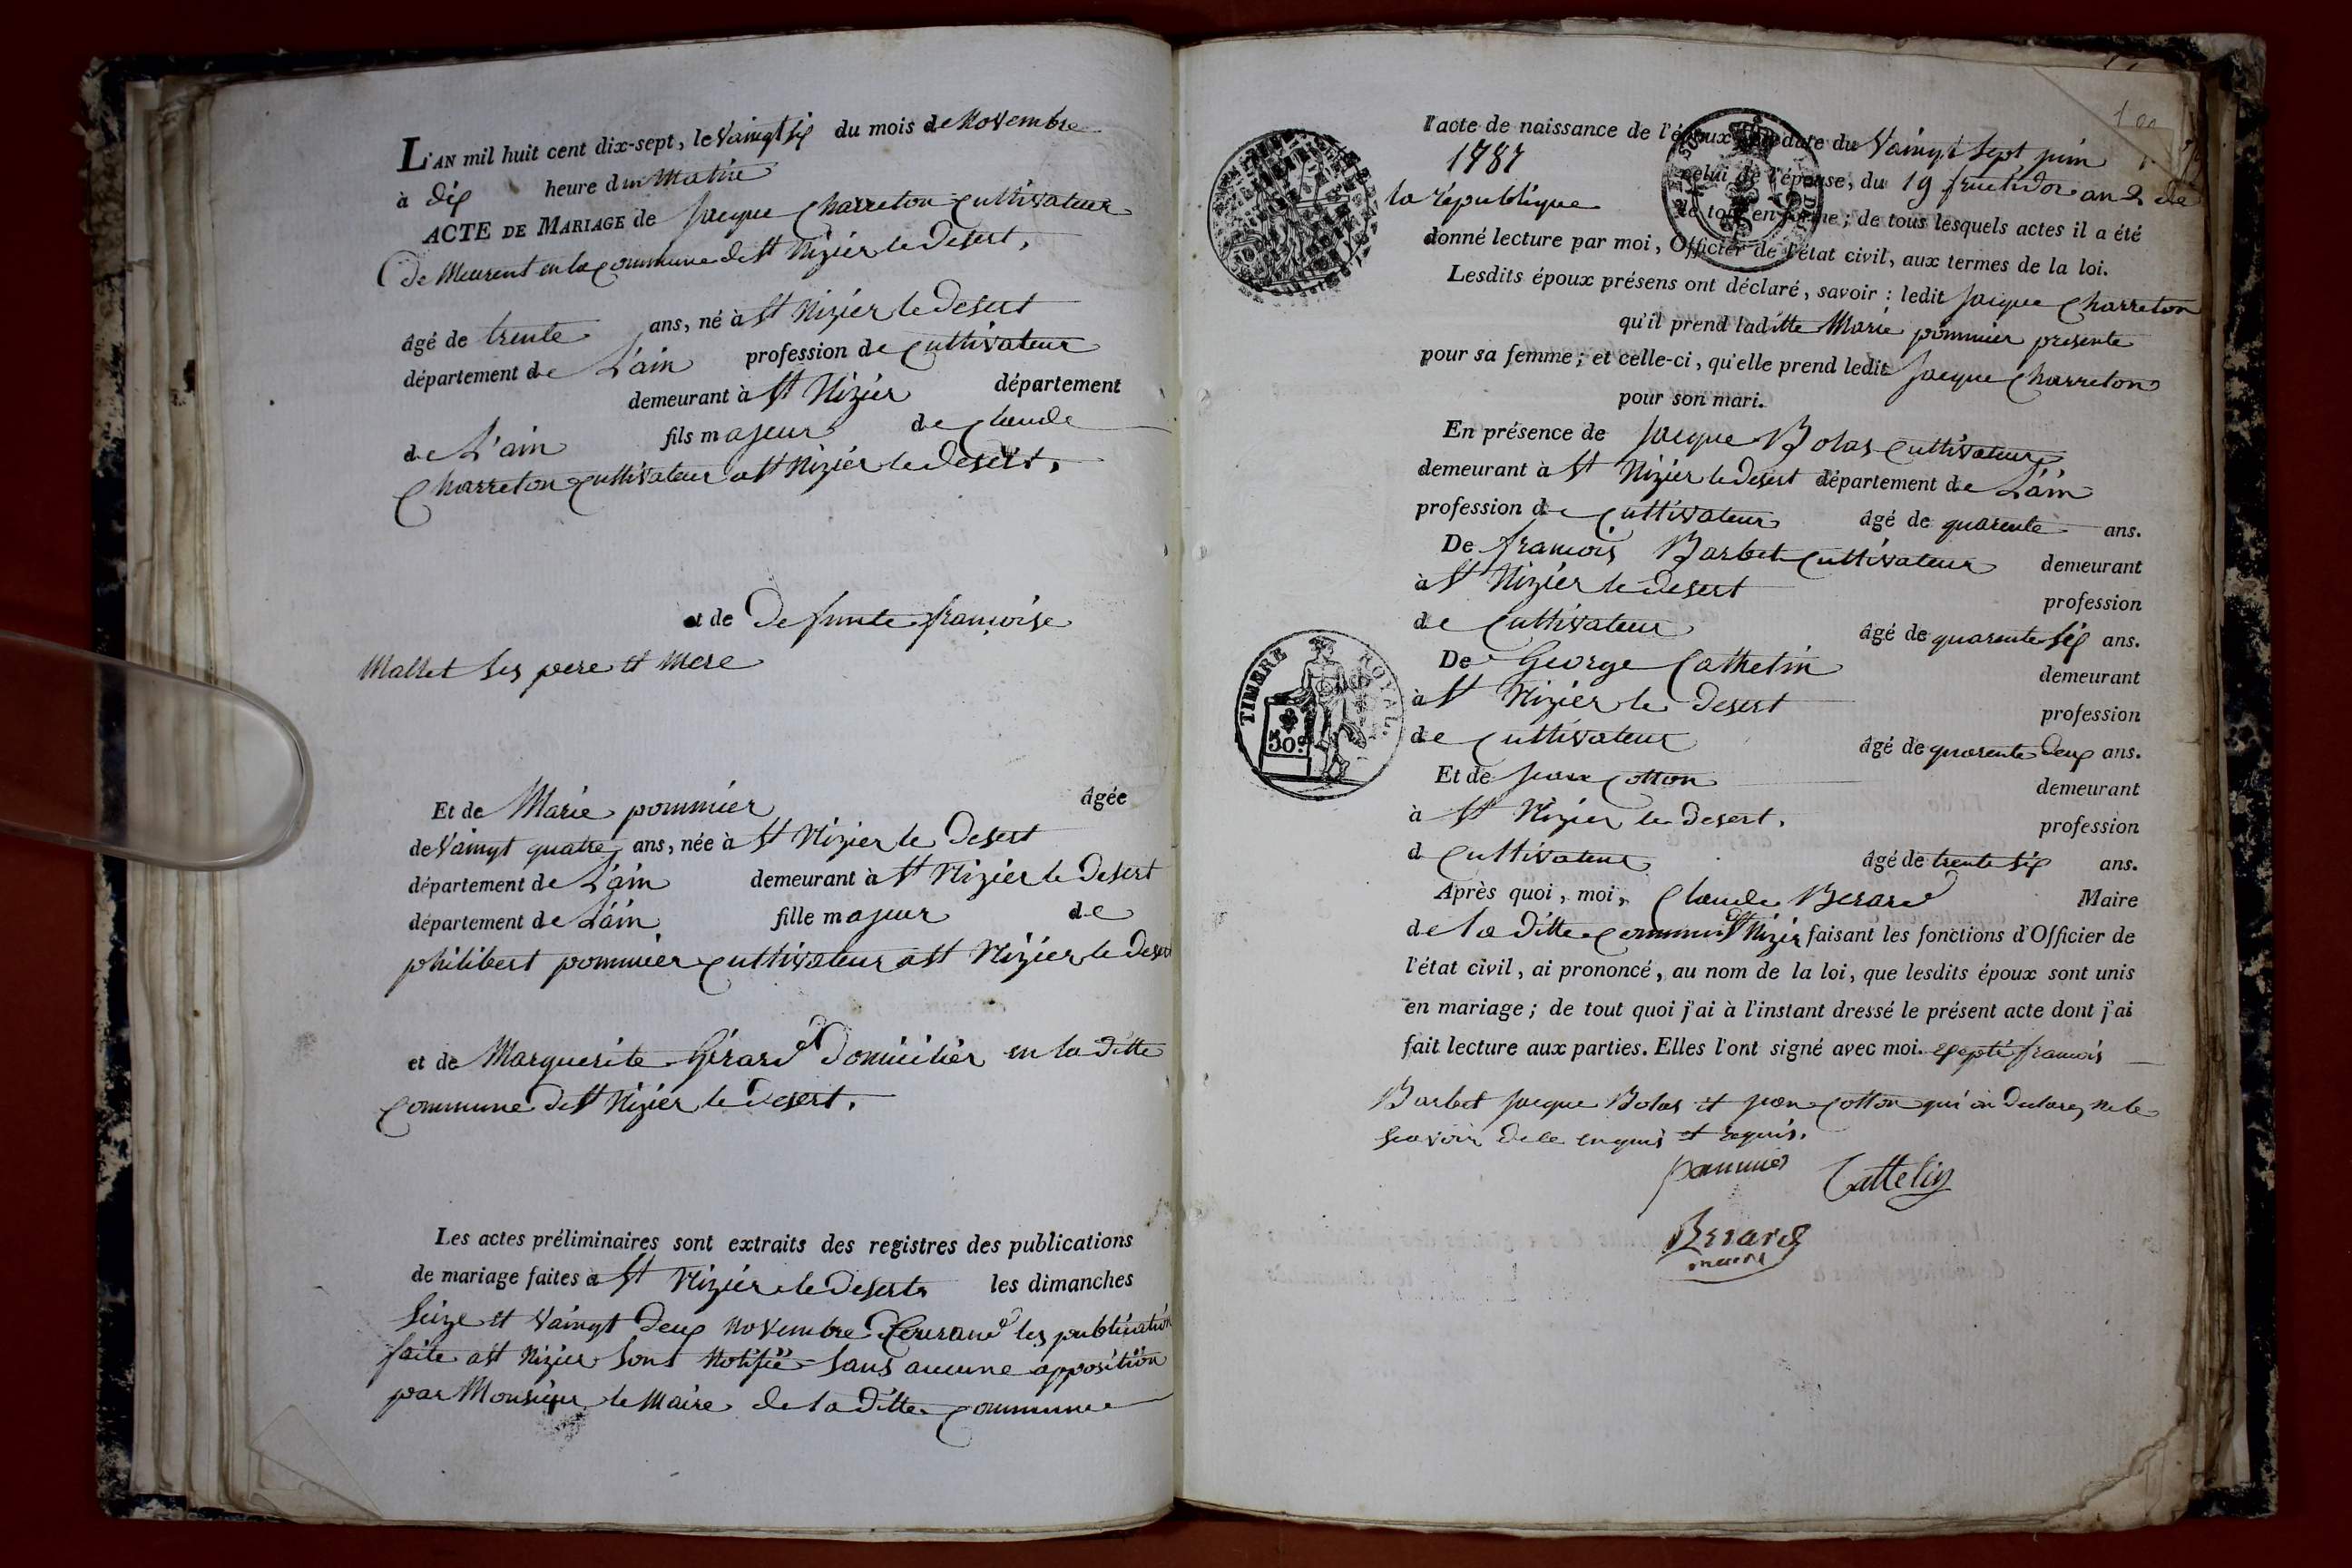 L'AN mil huit cent dix-sept, le Vaingt six du mois de Novembre
à dix heure du Matin
ACTE DE MARIAGE de Jacque Charreton Cultivateur
De Meurent en la Commune de St Nizier le Desert,
âgé de trente ans, né à St Nizier le Desert
département de L'ain profession de Cultivateur
demeurant à St Nizier département
de L'ain fils majeur de Claude
Charreton Cultivateur a St Nizier le Desert,
et de Defunte françoise
Mallet ses pere et mere
Et de Marie pommier âgée
de Vaingt quatre ans, née à St Nizier le Desert
département de L'ain demeurant à St Nizier le Desert
département de L'ain fille majeur de
philibert pommier Cultivateur a St Nizier le Desert
et de Marguerite Gérard et Domicilier en la ditte
Commune de St Nizier le Desert,
Les actes préliminaires sont extraits des registres des publications
de mariage faites à St Nizier le Desert les dimanches
Seize et Vaingt deux Novembre les publication
faite a St Nizier sont Notifié sans aucune apposition
par Monsieur le Maire de la ditte Commune
l'acte de naissance de l'époux date du Vaingt Sept juin
1787
celui de l'épouse, du 19 fructidor an 2 de
la république
le tout en forme ; de tous lesquels actes il a été
donné lecture par moi, Officier de l'état civil, aux termes de la loi.
Lesdits époux présens ont déclaré, savoir : ledit Jacque Charreton
qu'il prend laditte Marie pommier presente
pour sa femme ; et celle-ci, qu'elle prend ledit Jacque Charreton
pour son mari.
En présence de Jacque Bolas Cultivateur
demeurant à St Nizier le Desert département de L'ain
profession de Cultivateur âgé de quarente ans.
De francois Barbet Cultivateur demeurant
à St Nizier le Desert profession
de Cultivateur âgé de quarente six ans.
De George Cathelin demeurant
à St Nizier le Desert profession
de Cultivateur âgé de quarente deux ans.
Et de Jean Cotton demeurant
à St Nizier le Desert, profession
d Cultivateur âgé de trente six ans.
Après quoi, moi, Claude Berard Maire
de la ditte commune St Nizier faisant les fonctions d'Officier de
l'état civil, ai prononcé, au nom de la loi, que lesdits époux sont unis
en mariage ; de tout quoi j'ai à l'instant dressé le présent acte dont j'ai
fait lecture aux parties. Elles l'ont signé avec moi. excpté francois
Barbet Jacque Bolas et jean Cotton qui on declarez ne le
scavoir de ce enquis et requis.
pommier Cattelin
Berard
maire
TIMBRE ROYAL.
50c